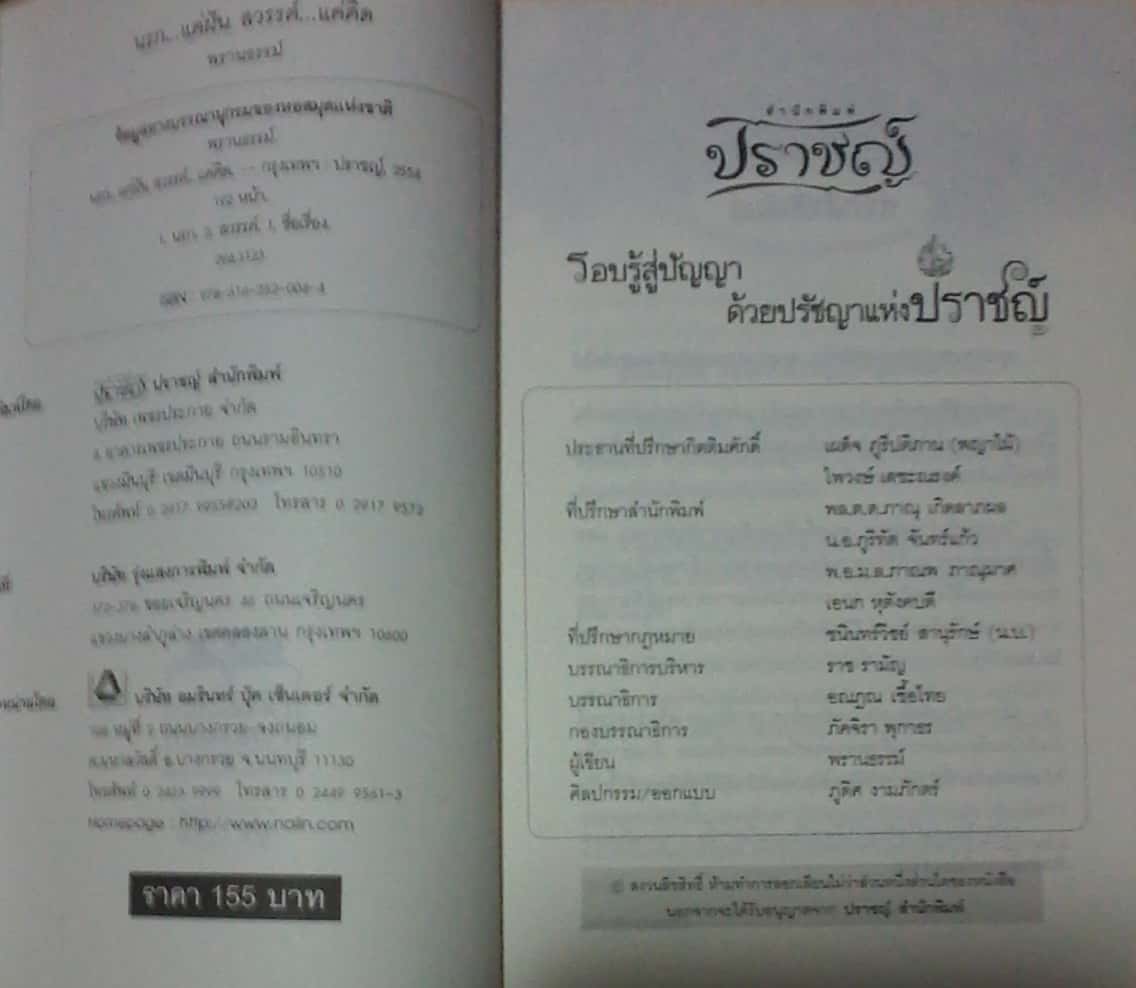 นรก...แค่ฝัน สวรรค์...แค่คิด
พรานธรรม์
ข้อมูลทางบรรณานุกรมของหอสมุดแห่งชาติ
พรานธรรม์
นรก...แค่ฝัน สวรรค์...แค่คิด. -- กรุงเทพฯ : ปราชญ์, 2554
หน้า.
1. นรก. 2. สวรรค์. I. ชื่อเรื่อง.
294.3123
ISBN : 978-616-
ปราชญ์ สำนักพิมพ์
บริษัท เพชรประกาย จำกัด
อาคารเพชรประกาย ถนนรามอินทรา
แขวงมีนบุรี เขตมีนบุรี กรุงเทพฯ 10510
โทรศัพท์ 0 2917 โทรสาร 0 2917 9572
บริษัท รุ่งแสงการพิมพ์ จำกัด
ซอยเจริญนคร 40 ถนนเจริญนคร
แขวงบางลำภูล่าง เขตคลองสาน กรุงเทพฯ 10600
บริษัท อมรินทร์ บุ๊ค เซ็นเตอร์ จำกัด
หมู่ที่ 2 ถนนบางกรวย-จงถนอม
อ.บางกรวย จ.นนทบุรี 11130
โทรศัพท์ 0 2423 9999 โทรสาร 0 2449 9561-3
Homepage : http://www.naiin.com
ราคา 155 บาท
สำนักพิมพ์
ปราชญ์
รอบรู้สู่ปัญญา
ด้วยปรัชญาแห่งปราชญ์
ประธานที่ปรึกษากิตติมศักดิ์ เผด็จ ภูรีปติภาน (พญาไม้)
ไพวงษ์ เตชะณรงค์
ที่ปรึกษาสำนักพิมพ์ พล.ต.ต.ภาณุ เกิดลาภผล
น.อ.ภูริทัต จันทร์แก้ว
พ.อ.ม.ล.ภาณพ ภาณุมาศ
เอนก หุตังคบดี
ที่ปรึกษากฎหมาย ชนินทร์วิชย์ สานุรักษ์ (น.บ.)
บรรณาธิการบริหาร ราช รามัญ
บรรณาธิการ อณฎณ เชื้อไทย
กองบรรณาธิการ ภัคจิรา พุกาธร
ผู้เขียน พรานธรรม์
ศิลปกรรม/ออกแบบ ภูดิศ งามภักตร์
© สงวนลิขสิทธิ์ ห้ามทำการลอกเลียนไม่ว่าส่วนหนึ่งส่วนใดของหนังสือ
นอกจากจะได้รับอนุญาตจาก ปราชญ์ สำนักพิมพ์